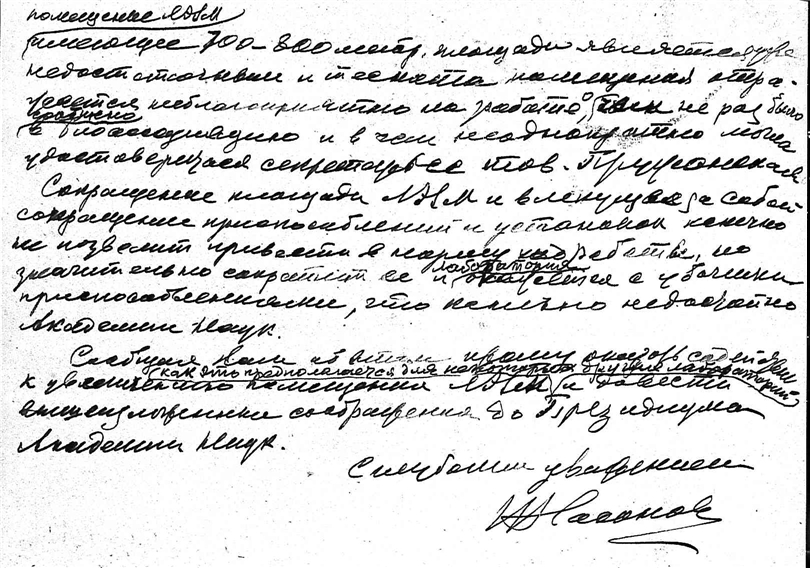 помещение ЛДМ
имеющее 700-800 метр. площади является уже
недостаточным и теснота помещения отра-
жается неблагоприятно на работе, не раз было
в и в чем неоднократно могла
удостовериться секретарь тов.
Сокращение площади ЛДМ и влекущее за собой
сокращение приспособлений и установок конечно
не позволит привести в норму работы, но
значительно сократит ее и лаборатория останется с убогими
приспособлениями, что недостойно
Академии Наук.
Сообщая Вам об этом прошу оказать содействие
как это предполагается для некоторых других лабораторий
к увеличению помещения ЛДМ и довести
вышеизложенные соображения до Президиума
Академии Наук.
С глубоким уважением